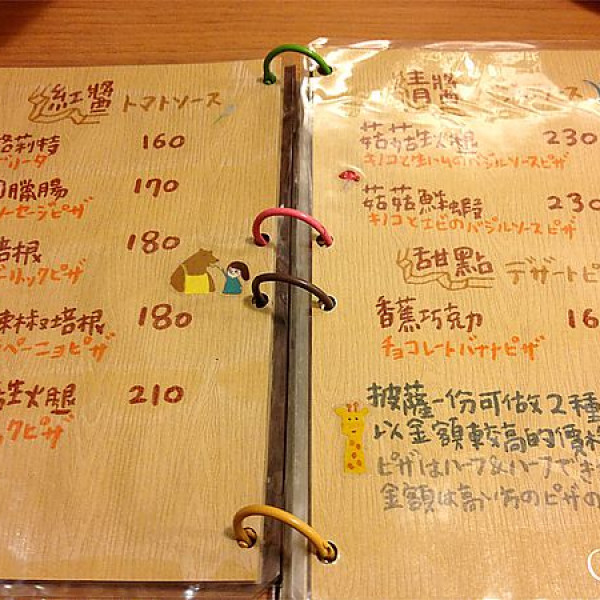 紅醬 トマトソース
格莉特 160
ゲリータ
臘腸 170
ソーセージピザ
培根 180
ーリックピザ
辣椒培根 180
ペーニョピザ
生火腿 210
ックピザ
青醬 ス
菇菇生火腿 230
キノコと生ハムのバジルソースピザ
菇菇鮮蝦 230
キノコとエビのバジルソースピザ
甜點 デザートピ
香蕉巧克力 16
チョコレートバナナピザ
披薩一份可做2種
以金額較高的價
ピザはハーフ&ハーフでき
金額は高い方のピザの